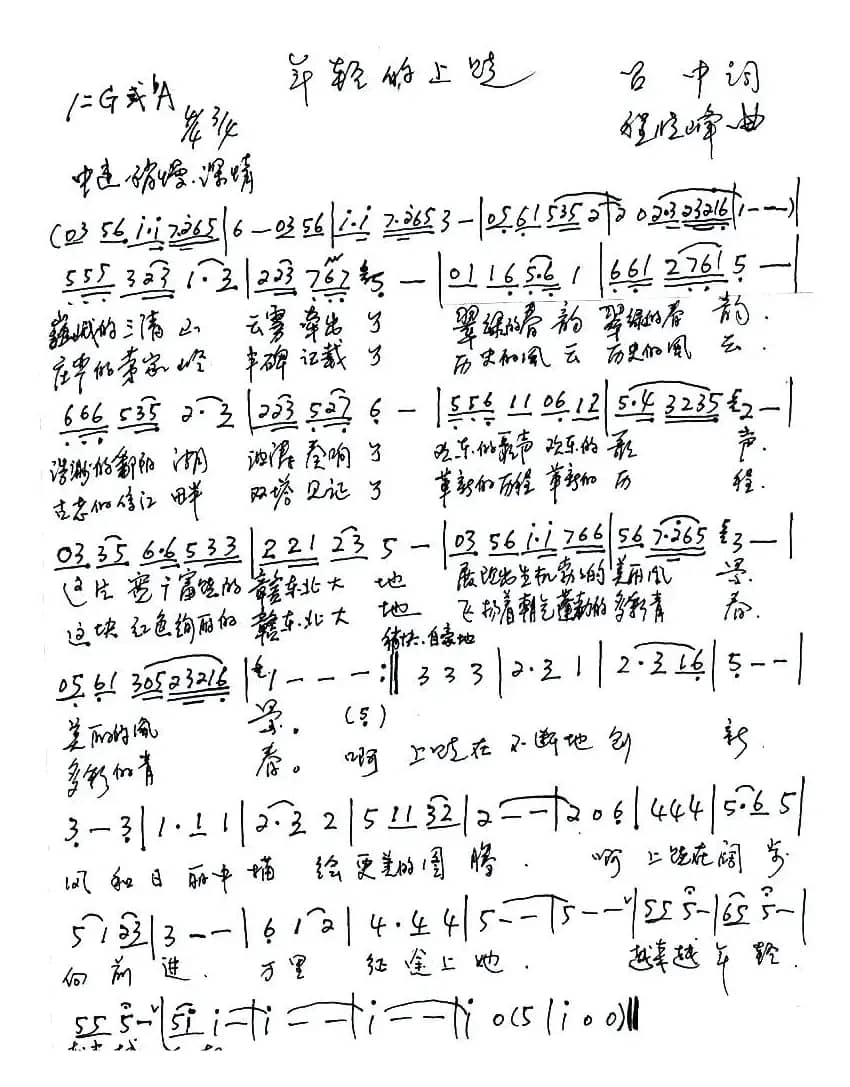 年轻的上饶
中词
1=G或bA
4/4 3/4
峰曲
中速 稍慢.深情
(03 56 i·i 7·265|6 — 03 56|i·i 7·265 3 —|0561 535 2|2 02·323216|1 — —)
555 323 1·3|223 767 5 —|01 16 5·6 1|661 2761 5 —|
巍峨的三清山 云雾牵出了 翠绿的春韵 翠绿的春韵.
庄严的茅家岭 丰碑记载了 历史的风云 历史的风云.
666 535 2·3|223 527 6 —|556 11 06 12|5·4 3235 2 —|
浩渺的鄱阳湖 奏响了 欢乐的歌声 欢乐的歌声.
古老的信江畔 双塔见证了 革新的历程 革新的历程.
03 35 6·6 533|221 23 5 —|03 56 i·i 766|56 7·265 3 —|
这片宽广富饶的赣东北大地 展现出生机勃勃的美丽风景.
这块红色绚丽的赣东北大地 飞扬着朝气蓬勃的多彩青春.
稍快.自豪地
05 61 30523216|1 — — —:‖ 3 3 3|2·3 1|2·3 16|5 — —|
(5)
美丽的风景。 啊 上饶在不断地创新
多彩的青春。
3 — 3|1·1 1|2·3 2|5 11 32|2 — —|2 0 6|4 4 4|5·6 5|
风和日丽中描绘更美的图腾. 啊 上饶在阔步
5 1 23|3 — —|6 1 2|4·4 4|5 — —|5 — — v|55 5 —|65 5 —|
向前进. 万里征途上她. 越来越年轻.
55 5 — v|5i i —|i — —|i — —|i 0(5|i 0 0)‖